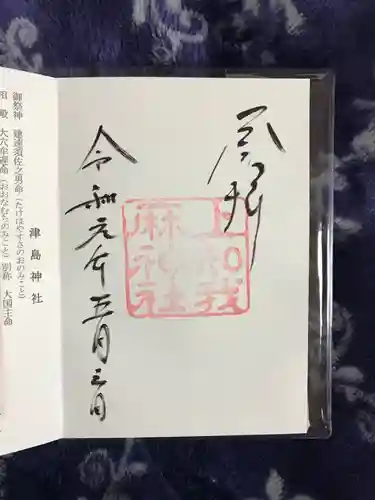 奉拝
上知我
麻神社
令和元年五月三日
津島神社
御祭神 建速須佐之男命(たけはやすさのおのみこと)
相 殿 大穴牟遅命(おおなむちのみこと)別称 大国主命